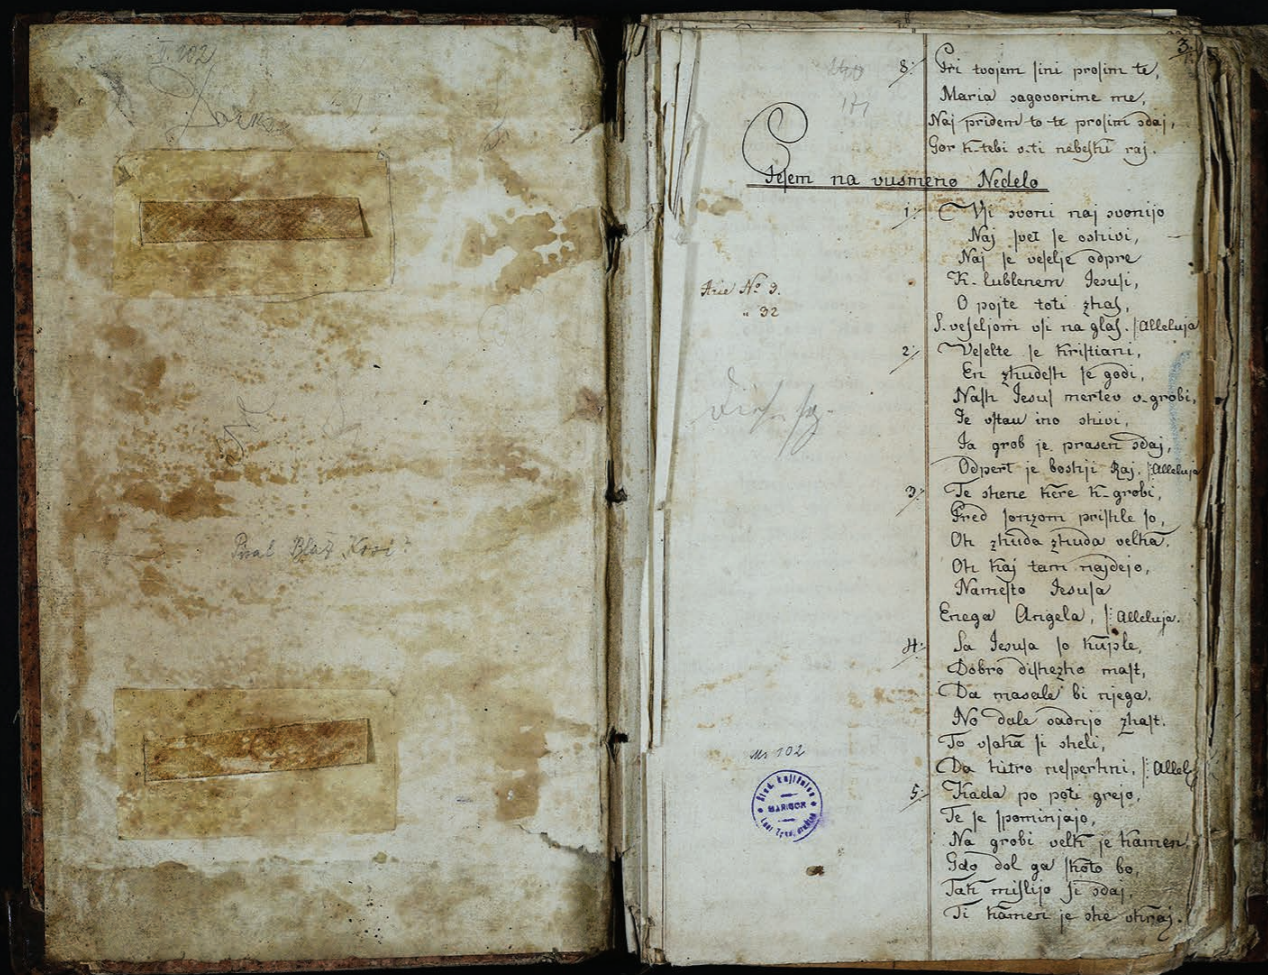 102
Pisal Blaž Kosi?
3.
8. Pri tvojem ſini proſim te,
Maria sagovorime me,
Naj pridem to-te proſim sdaj,
Gor k-tebi v-ti nebeſki raj.
Peſem na vusmeno Nedelo
1. Vſi svoni naj svonijo
Naj ſvet ſe oshivi,
Naj ſe veſelje odpre
K-lublenem Jesuſi,
O pojte toti zhaſ,
S. veſeljom vſi na glaſ. /: Alleluja
Arie No 3.
" 32
2. Veſelte ſe kriſtiani,
En zhudesh ſe godi,
Naſh Jesuſ mertev v-grobi,
Je vſtau ino shivi,
Ja grob je prasen sdaj,
Odpert je boshji Raj. /: Alleluja
3. Te shene kere k-grobi,
Pred ſonzom priſhle ſo,
Oh zhuda zhuda velka.
Oh kaj tam najdejo,
Nameſto Jesuſa
Enega Angela, /: Alleluja.
4. Sa Jesuſa ſo kupſle,
Dobro diſhezho maſt,
Da masale bi njega,
No dale sadnjo zhaſt.
To vſaka ſi sheli,
Da hitro neſperhni, /: Allel
5. Kada po poti grejo,
Te ſe ſpominjajo,
Na grobi velk je kamen
Gdo dol ga ſkoto bo,
Tak miſlijo ſi sdaj,
Ti kamen je she vkraj.
Ms 102
Stud. knjižnica
MARIBOR